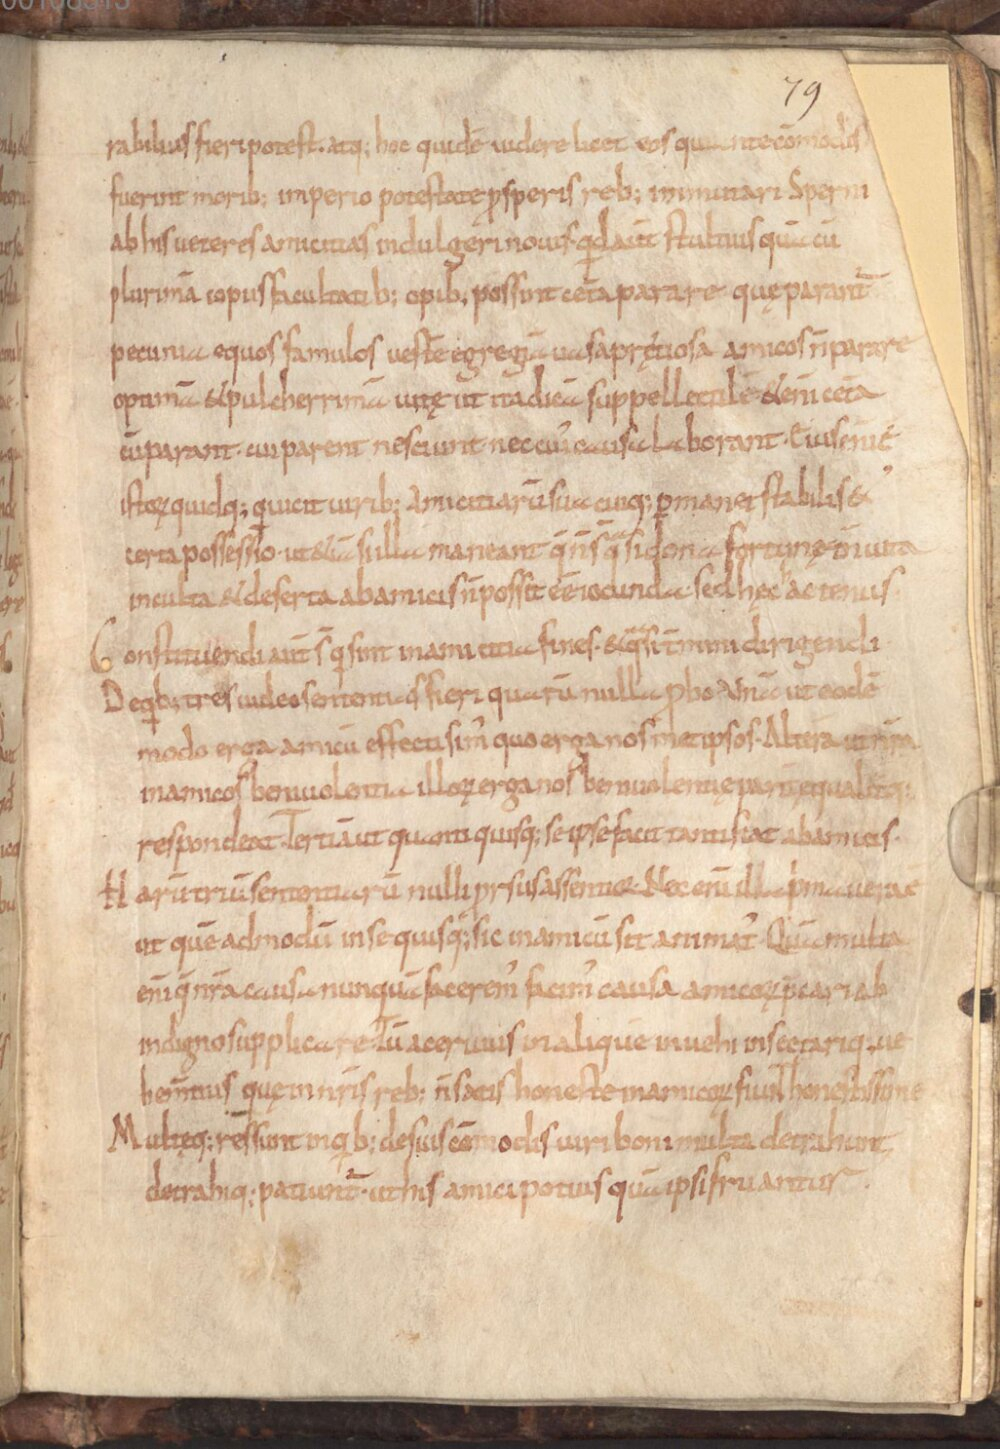 00108515
79
rabilius fieri potest. atq; hoc quidē uidere licet eos qui ante cōmodis
fuerint morib; imperio potestate ꝓsperis reb; inmutari Sperni
ab his ueteres amicitias indulgeri nouis. qd aut̄ stultius quā cū
plurimū copiis facultatib; opib; possint cet̄a parare quę parant᷑
pecuniā equos famulos uestē egregiā uasa prętiosa amicos n̄ parare
optimā & pulcherrimā uitę ut ita dicā suppellectilē & eni cet̄a
cū parant. cui parent nesciunt nec cui᾽ causa laborant. Eius eni ē
istoꝝ quidq; qui uicit uirib; Amicitiarū sua cuiq; ꝑmanet stabilis &
certa possessio. ut & iā si illa maneant q̄ s̄ q̄si dona fortunę tn̄ uita
inculta & deserta ab amicis n̄ possit eē iocunda sed hęc actenus.
Constituendi aut̄ s̄ qui sint in amicitia fines. & q̄si t̄mini diligendi
De quib; tres uideo sententias fieri quarū nullā ꝓbo Unā ut eodē
modo erga amicū effecti sim᾽ quo erga nosmetipsos. Alterā ut nr̄a
in amicos beniuolentia illoꝝ erga nos beniuolentię parit̄ ęqualit̄q;
respondeat. Tertiā ut quanti quisq; se ipse facit tanti fiat ab amicis.
Harū triū sententiarū nulli ꝓrsus assentior. Nec eni illa prima uera ē
ut quē ad modū in se quisq; sic in amicū sit animat᾽. Quā multa
eni q̄ nr̄a causa nunquā facerem᾽ facim᾽ causa amicoꝝ p̄cari ab
indigno supplicare. Tū aceruius in aliquē inuehi insectariq; ue
hementius quę in nr̄is reb; n̄ satis honeste in amicoꝝ fiunt honestissime
Multęq; res sunt in quib; de suis cōmodis uiri boni multa detrahunt
detrahiq; patiunt᷑. ut his amici potius quā ipsi fruantur.